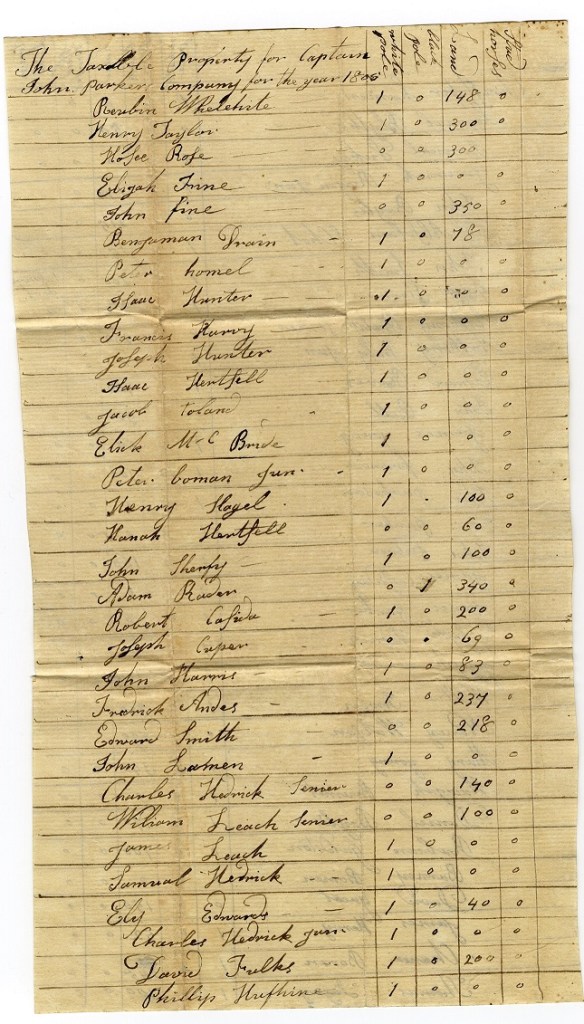 The Taxable Property for Captain
John Parkers Company for the year 1806
white pole
black pole
Land
Stud horses
Reubin Whelehile 1 0 148 0
Henry Taylor 1 0 300 0
Hosee Rose 0 0 300
Elijah Finne 1 0 0 0
John fine 0 0 350 0
Benjaman Drain - 1 0 78
Peter homel 1 0 0 0
Isaac Hunter - 1 0 0 0
Francis Harvy - 1 0 0 0
Joseph Hunter 1 0 0 0
Isaac Hertsell 1 0 0 0
Jacob toland 1 0 0 0
Elick McBride 1 0 0 0
Peter boman Jun. - 1 0 0 0
Henry Slagel 1 . 100 0
Hanah Hertsell 0 0 60 0
John Sherfy - 1 0 100 0
Adam Rader 0 1 340 0
Robert Casida 1 0 200 0
Joseph Cuper 0 0 69 0
John Harris - 1 0 83 0
Fredrick Andes - 1 0 237 0
Edward Smith 0 0 218 0
John Lamen - 1 0 0 0
Charles Hedrick Senier 0 0 140 0
William Leach Senier 0 0 100 0
James Leach 1 0 0 0
Samual Hedrick - 1 0 0 0
Elij Edwards - 1 0 40 0
Charles Hedrick Jun. 1 0 0 0
David Fulks 1 0 200 0
Phillip Hufhine 1 0 0 0